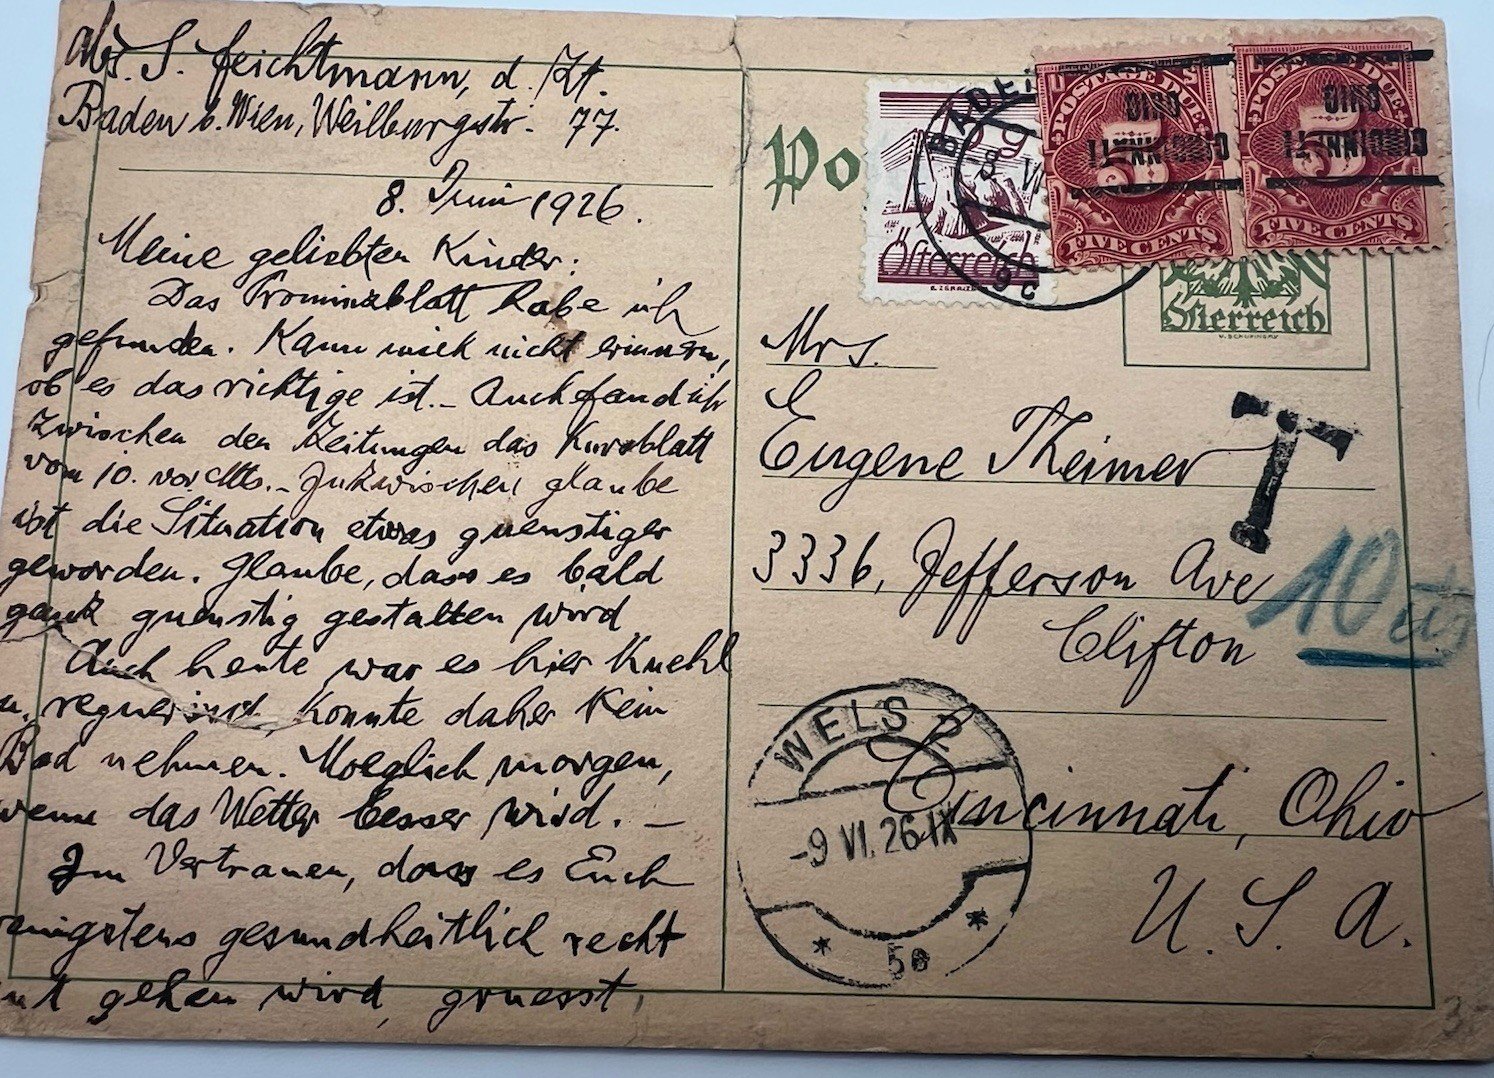 Abs. S. Feichtmann, d. Zt.
Baden b. Wien, Weilburgstr. 77.
8. Juni 1926.
Meine geliebten Kinder:
Das habe ich
gefunden. Kann mich nicht erinnern,
ob es das richtige ist. _ Auch fand ich
zwischen den Zeitungen das Kursblatt
vom 10. vor. Mts. _ Inzwischen glaube
ist die Situation etwas guenstiger
geworden. Glaube, dass es bald
ganz guenstig gestalten wird
Auch heute war es hier Kuehl
u. regnerisch, konnte daher kein
Bad nehmen. Moeglich morgen,
wenn das Wetter besser wird. _
Im Vertrauen, dass es Euch
wenigstens gesundheitlich recht
gut gehen wird, gruesst,
Po
BADEN
Österreich
POSTAGE DUE
CINCINNATI
OHIO
5
FIVE CENTS
POSTAGE DUE
CINCINNATI
OHIO
5
FIVE CENTS
Österreich
Mrs.
Eugene Theimer
T
3336, Jefferson Ave
10
Clifton
Cincinnati, Ohio
U. S. A.
WELS 2
-9 VI. 26-IX
* 5e *